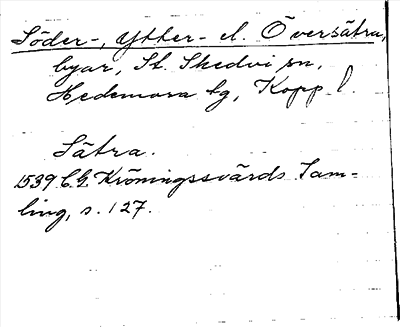 Söder-, Ytter- el. Översätra,
byar, St. Skedvi sn,
Hedemora tg, Kopp. l.
Sätra.
1539 C.G. Kröningssvärds Sam-
ling, s. 127.